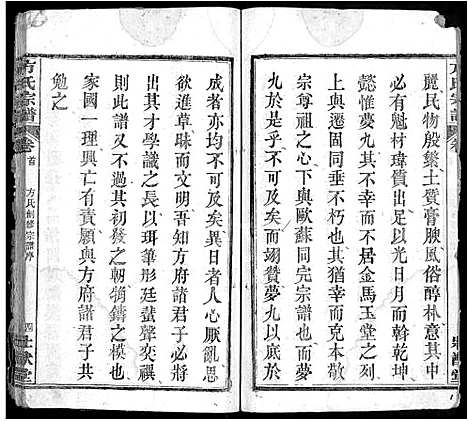 麗民物殷蘩土質膏腴風俗醇朴意其中
必有魁材瑋質出足以光日月而斡乾坤
懿惟夢九其不幸而不居金馬玉堂之列
是與遷固同垂不朽也其猶幸而克本敬
宗尊祖之心下與歐蘇同完宗譜也而夢
九以均不可及矣而翊贊夢九以底於
成者亦均不可及矣異日者人心厭亂思
欲進草昧而文明吾知方府諸君子必有
出其才學識之長以珥筆彤廷蜚聲奕禩
則此譜又不過其初發之朝犄鑄之模也
家國一理興亡有責願與方府諸君子共
勉之
方氏宗譜
卷首
方氏創修宗譜序
四